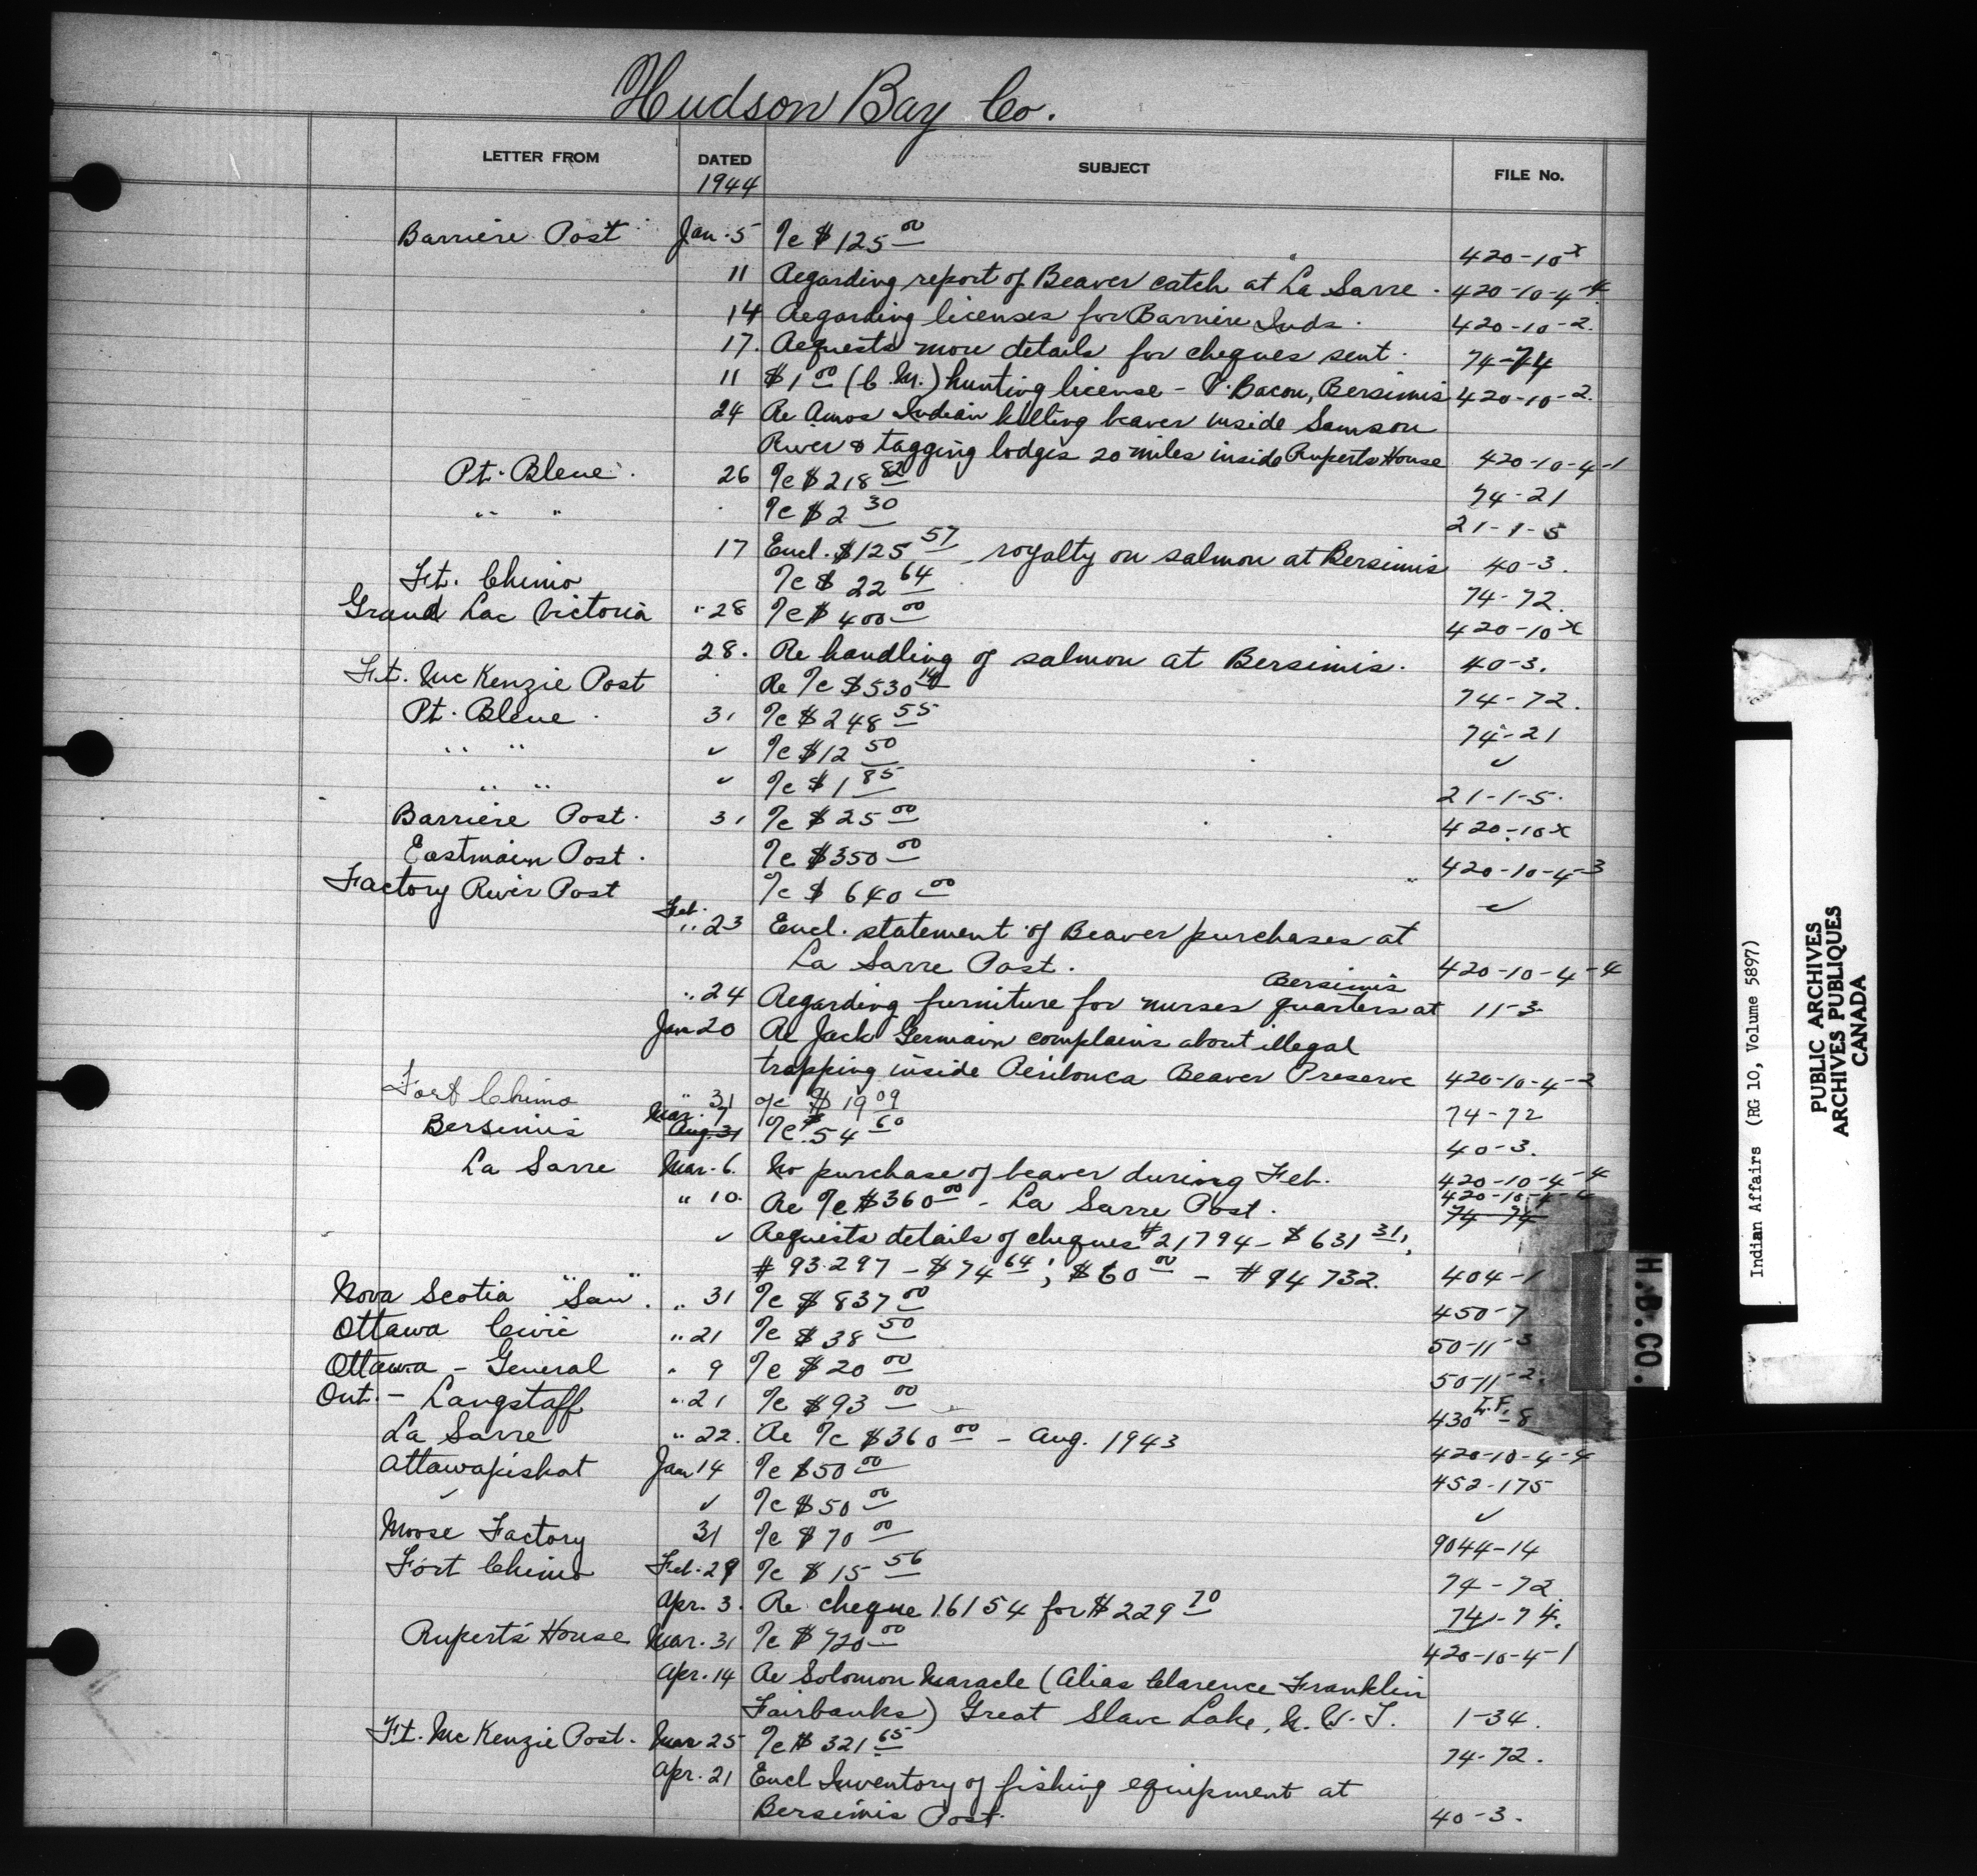 Hudson Bay Co.
LETTER FROM DATED SUBJECT FILE No.
1944
Barriere Post Jan. 5 %c $125 00 420-10 x
11 Regarding report of Beaver catch at La Sarre. 420-10-4-4
14 Regarding licenses for Barriere Inds. 420-10-2.
17. Requests more details for cheques sent. 74-74
11 $1 00 (C.M.) hunting license - P. Bacon, Bersimis 420-10-2.
24 Re Amos Indian killing beaver inside Samson
River & tagging lodges 20 miles inside Ruperts House 420-10-4-1
Pt. Bleue. 26 %c $218 82 74-21
" " %c $2 30 21-1-5
17 Encl. $125 57 royalty on salmon at Bersimis 40-3.
Ft. Chimo %c $22 64 74-72.
Grand Lac Victoria " 28 %c $400 00 420-10 x
28. Re handling of salmon at Bersimis. 40-3.
Ft. Mc Kenzie Post Re %c $530 14 74-72.
Pt. Bleue. 31 %c $248 55 74-21
" " ✓ %c $12 50 ✓
" " ✓ %c $1 85 21-1-5.
Barriere Post. 31 %c $25 00 420-10 x
Eastmain Post. %c $350 00 420-10-4-3
Factory River Post %c $640 00 ✓
Feb.
" 23 Encl. statement of Beaver purchases at
La Sarre Post. 420-10-4-4
Bersimis
" 24 Regarding furniture for nurses quarters at 11-3
Jan 20 Re Jack Germain complains about illegal
trapping inside Peribonca Beaver Preserve 420-10-4-2
Fort Chimo " 31 %c $19 09 74-72
Mar. 7
Bersimis Aug. 31 %c $54 60 40-3.
La Sarre Mar. 6. No purchase of beaver during Feb. 420-10-4-4
420-10-4-4
" 10. Re %c $360 00 - La Sarre Post. 74-74
✓ Requests details of cheques #21794 - $631 31;
#93297 - $74 64; $60 00 - #94732. 404-1
Nova Scotia "San". " 31 %c $837 00 450-7
Ottawa Civic " 21 %c $38 50 50-11-3
Ottawa - General " 9 %c $20 00 50-11-2.
Ont. - Langstaff " 21 %c $93 00 430 I.F. -8
La Sarre " 22. Re %c $360 00 - Aug. 1943 420-10-4-4
Attawapiskat Jan 14 %c $50 00 452-175
✓ ✓ %c $50 00 ✓
Moose Factory 31 %c $70 00 9044-14
Fort Chimo Feb. 29 %c $15 56 74-72.
Apr. 3. Re cheque 16154 for $229 70 74-74.
Ruperts House Mar. 31 %c $720 00 420-10-4-1
Apr. 14 Re Solomon Maracle (Alias Clarence Franklin
Fairbanks) Great Slave Lake, N.W.T. 1-34.
Ft. Mc Kenzie Post. Mar 25 %c $321 65 74-72.
Apr. 21 Encl Inventory of fishing equipment at
Bersimis Post. 40-3.
H.B.CO.
Indian Affairs (RG 10, Volume 5897)
PUBLIC ARCHIVES
ARCHIVES PUBLIQUES
CANADA